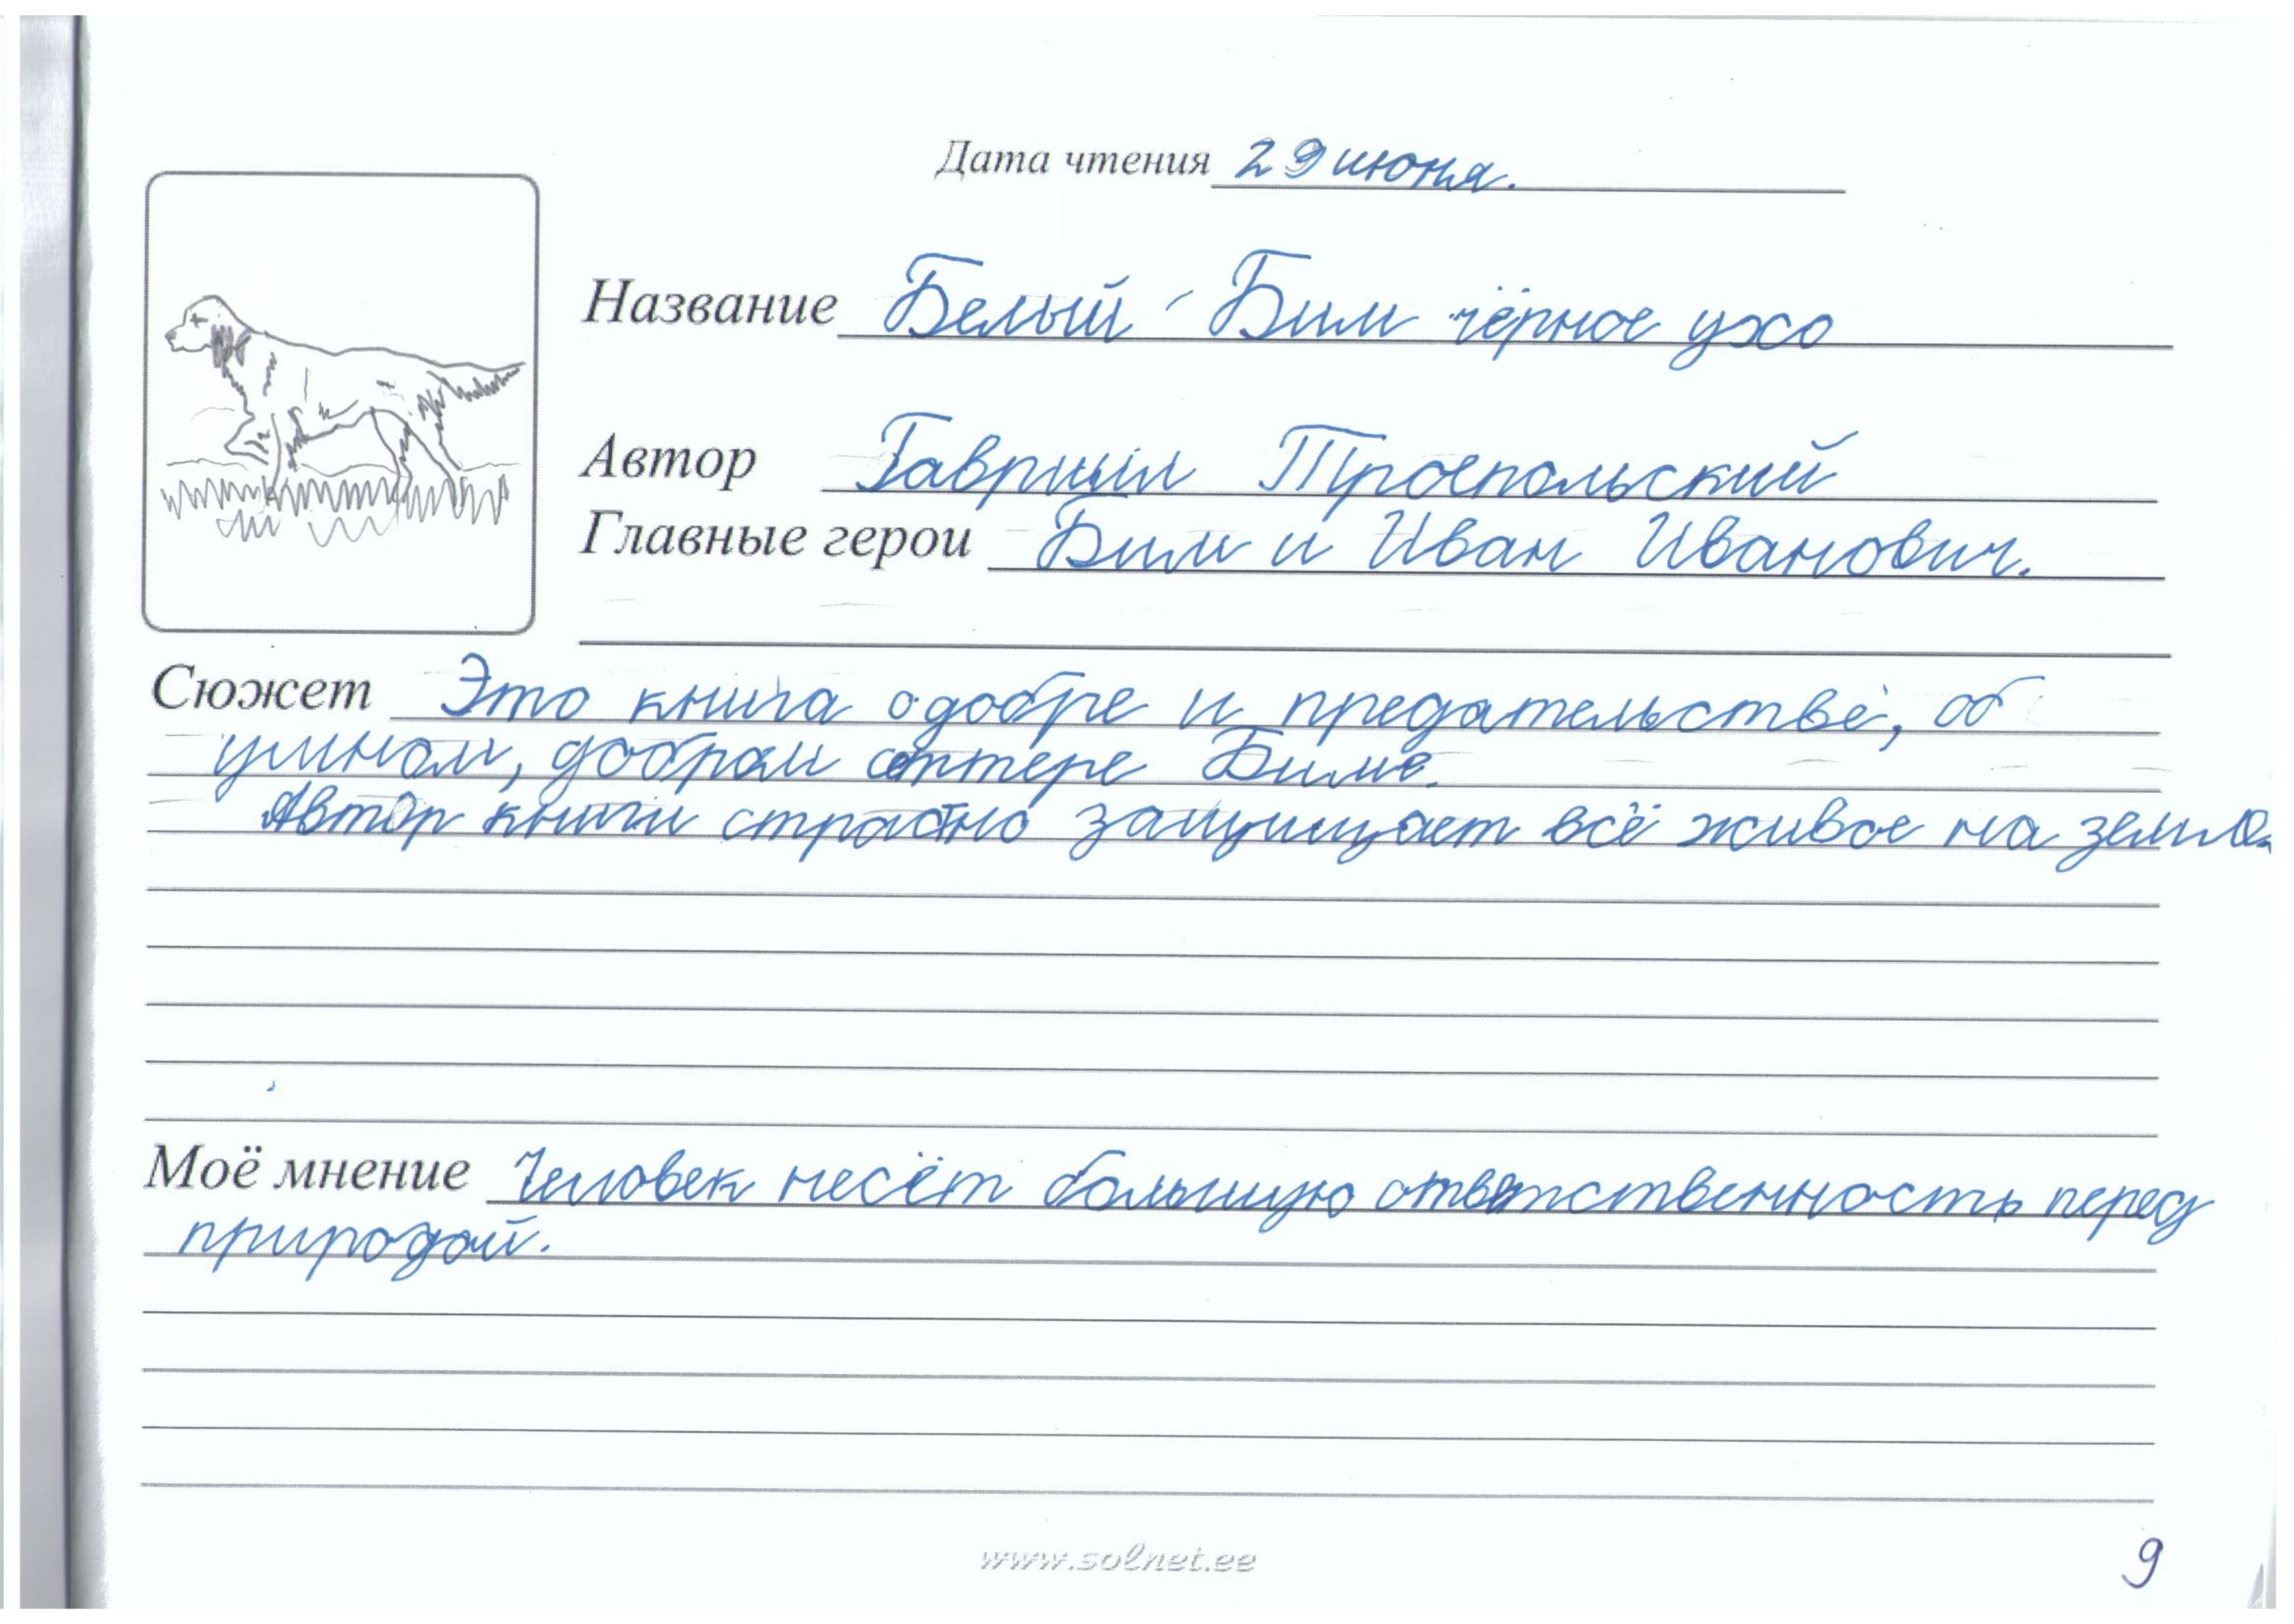 Дата чтения 29 июня.
Название Белый Бим чёрное ухо
Автор Гавриил Троепольский
Главные герои Бим и Иван Иванович.
Сюжет Это книга о добре и предательстве, об
умном, добром сеттере Биме.
Автор книги страстно защищает всё живое на земле.
Моё мнение Человек несёт большую ответственность перед
природой.
www.solnet.ee
9